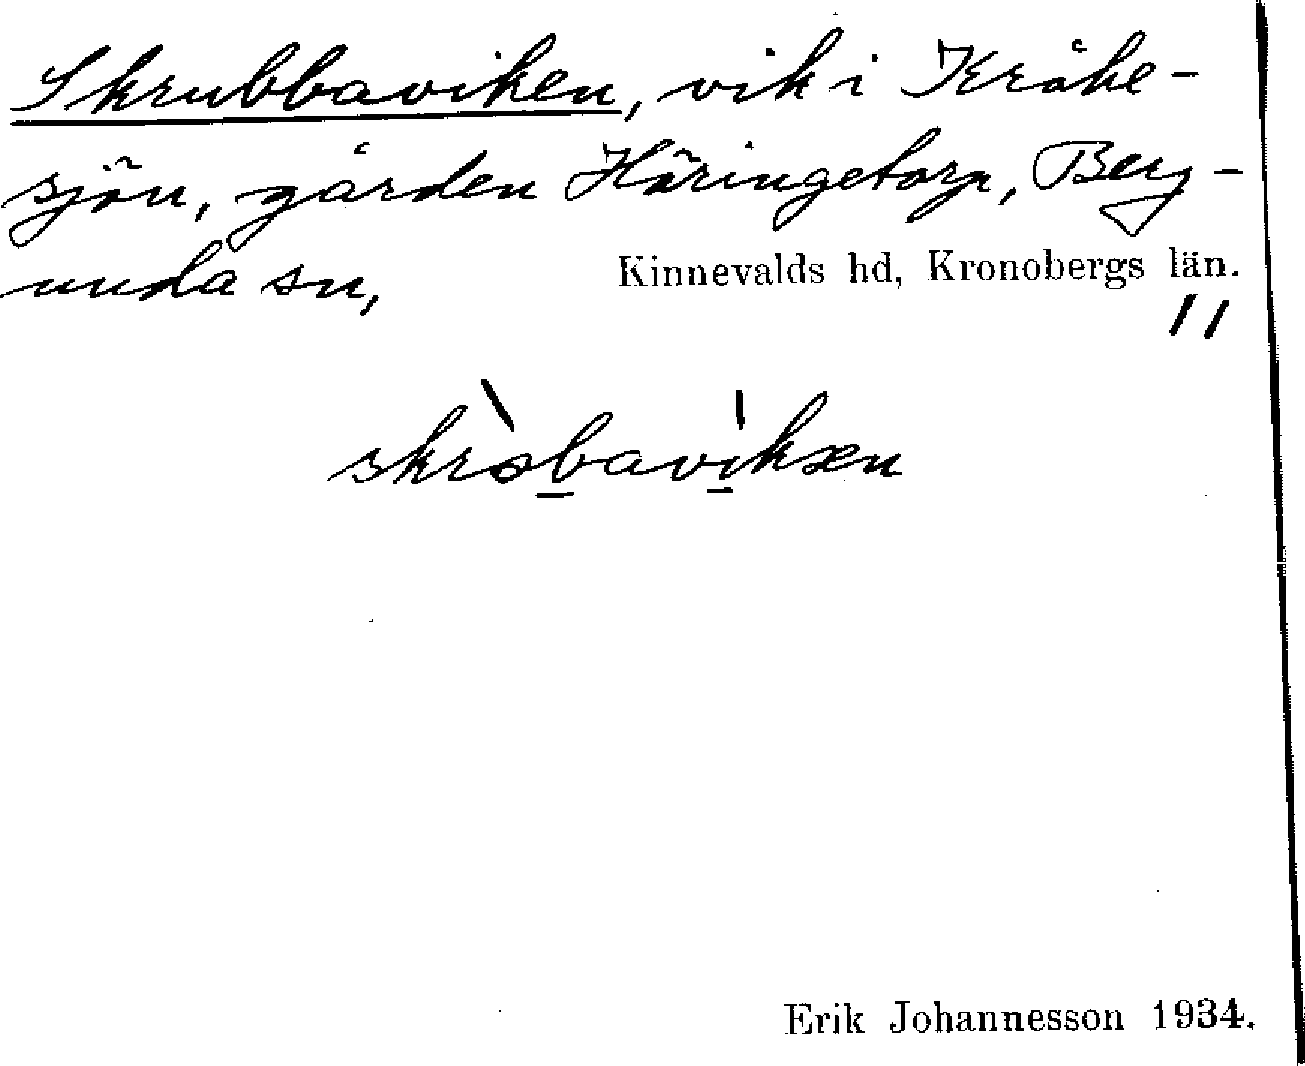 Skrubbaviken, vik i Kråke-
sjön, gården Häringetorp, Berg-
unda sn,
Kinnevalds hd, Kronobergs län.
11
skròbavikæn
Erik Johannesson 1934.